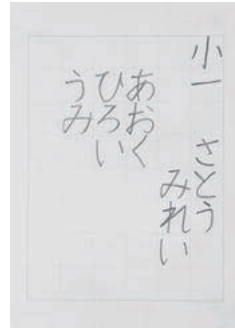 小一 さとう みれい
あおく
ひろい
うみ